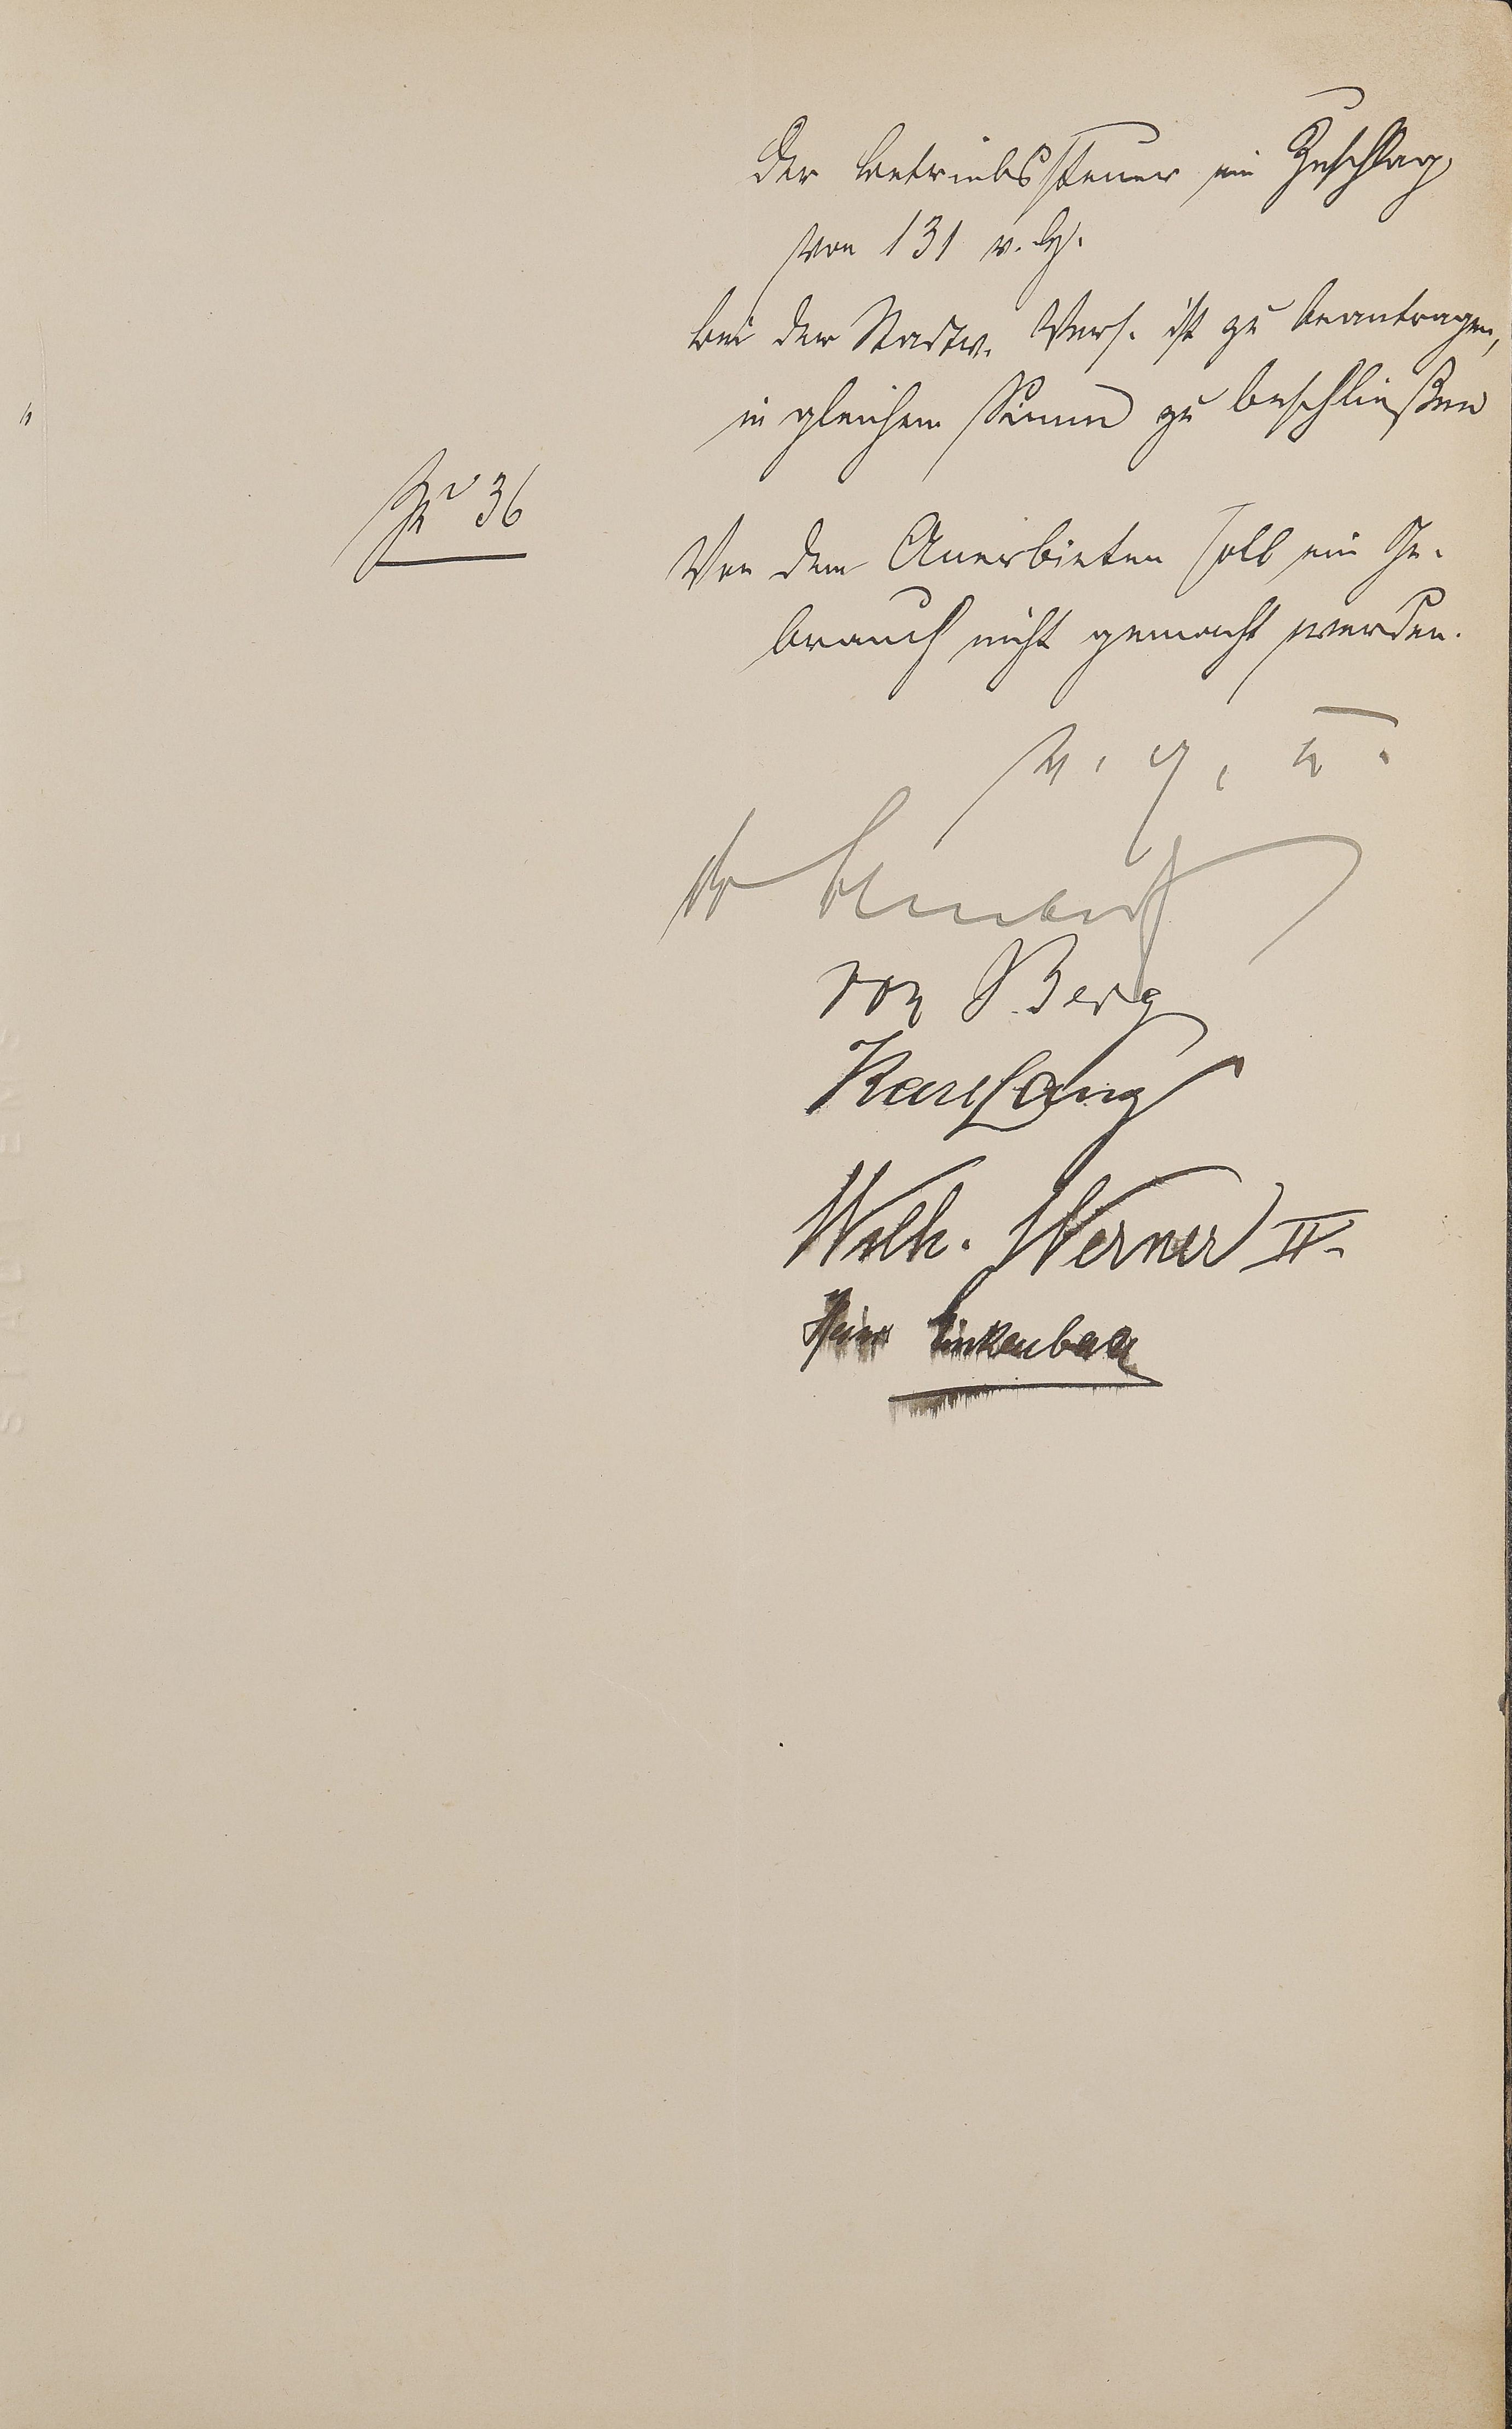 der Betriebssteuer ein Zuschlag
von 131 v. H.
bei der Stadtv. Vers. ist zu beantragen,
in gleichem Sinne zu beschließen
Zu 36
Von dem Anerbieten soll ein Ge-
brauch nicht gemacht werden.
v. g. u.
von Berg
Karl Lang
Wilh. Werner II.
Heinr Linkenbach